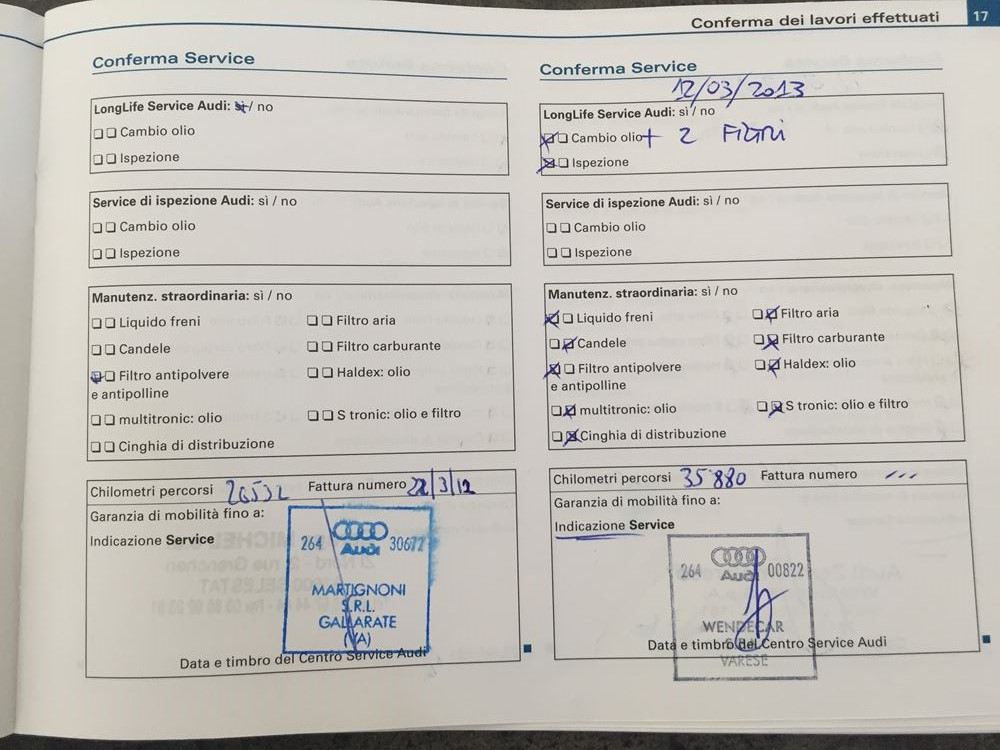 Conferma dei lavori effettuati 17
Conferma Service
LongLife Service Audi: sì / no
Cambio olio
Ispezione
Service di ispezione Audi: sì / no
Cambio olio
Ispezione
Manutenz. straordinaria: sì / no
Liquido freni Filtro aria
Candele Filtro carburante
Filtro antipolvere Haldex: olio
e antipolline
multitronic: olio S tronic: olio e filtro
Cinghia di distribuzione
Chilometri percorsi 26532 Fattura numero 22/3/12
Garanzia di mobilità fino a:
Indicazione Service
264 Audi 30677
MARTIGNONI
S.R.L.
GALLARATE
(VA)
Data e timbro del Centro Service Audi
Conferma Service
12/03/2013
LongLife Service Audi: sì / no
Cambio olio + 2 FILTRI
Ispezione
Service di ispezione Audi: sì / no
Cambio olio
Ispezione
Manutenz. straordinaria: sì / no
Liquido freni Filtro aria
Candele Filtro carburante
Filtro antipolvere Haldex: olio
e antipolline
multitronic: olio S tronic: olio e filtro
Cinghia di distribuzione
Chilometri percorsi 35880 Fattura numero ---
Garanzia di mobilità fino a:
Indicazione Service
264 Audi 00822
WENDECAR
Data e timbro del Centro Service Audi
VARESE